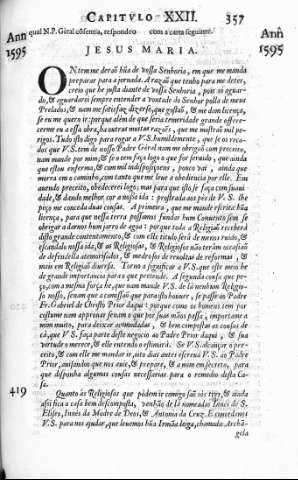 CAPITVLO XXII. 357
Ann 1595
qual N.P. Géral cõsentia, respondeo com a carta seguinte.
Ann 1595
JESUS MARIA.
ONtem me deraõ hũa de vossa Senhoria, em que me manda
preparar para a jornada. A razaõ que tenho para me deter,
creio que he justa diante de vossa Senhoria, pois só aguardo,
& aguardarei sempre entender a vontade do Senhor polla de meus
Prelados, & nam me satisfaz dizerse, que gostaõ, & me dam licença,
se eu me quero ir: porque alèm de que seria temeridade grande offerecerme
eu a essa obra, ha outras muitas razoẽs, que me mostraõ mil perigos.
Tudo isto digo para rogar a V.S. humildemente, que se os recados
que V.S. tem de nosso Padre Géral nam me obrigaõ com preceito,
nam mande por mim, & se o tem faça logo o que for servido, que ainda
que estou enferma, & com mil indisposiçoens, pouco vai, ainda que
morra em o caminho, com tanto que me leve a obediencia por elle. Em
avendo preceito, obedecerei logo; mas para que isto se faça com suavidade,
& donde melhor, cae a nossa ida: prostrada aos pès de V.S. lhe
peço me conceda duas cousas. A primeira, que me mande esferita hũa
licença, para que nessa terra possamos fundar hum Convento sem se
obrigar a darmos hum jarro de agua: porque toda a Religiaõ receberá
disto grande contentamento, & com este titulo será de menos ruido, &
escandalo nossa ida, & as Religiosas, & Religiosos nâo teràm occasiaõ
de desenseilla atemorisados, & medrosos de revoltas de reformas, &
mais em Religiaõ diversa. Torno a significar a V.S. que este meio he
de grande importancia para o que pretende. A segunda cousa que peço,
com a mesma força he, que nam mande V.S. de là nenhum Religioso
nosso, senam que a commissaõ que para isto houver, se passe ao Padre
Fr. Gabriel de Christo Prior daqui: porque como os homens tem por
costume nam approvar senam o que por suas mãos passa, importame a
mim muito, para deixar acomodadas, & bem compostas as cousas de
cá, que V.S. faça parte deste negocio ao Padre Prior daqui, & sua
virtude o merece, & elle entendo o estimará. Se V.S. alcançar o preceito,
& com elle me mandar ir, oito dias antes escreva V.S. ao Padre
Prior, avisandoo que nos avie, & prepare, & a mim em secreto, para
que disponha algumas cousas necessarias para o remedio desta Casa.
419
Quanto às Religiosas que podem ir comigo saõ oito tres, & ainda
assi fica a casa bem descomposta, venhaõ de là nomeadas Innes de S.
Eliseo, Innes da Madre de Deos, & Antonia da Cruz. E concedemos
V.S. para nos ajudar, que levemos hũa Irmãa leiga, chamada Archãgela